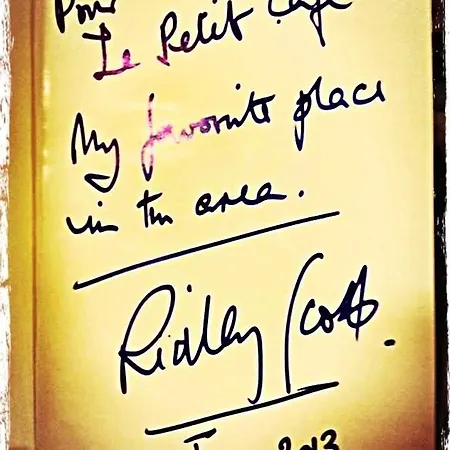 Pour
Le Petit Café
My favorite place
in the area.
Ridley Scott.
2013